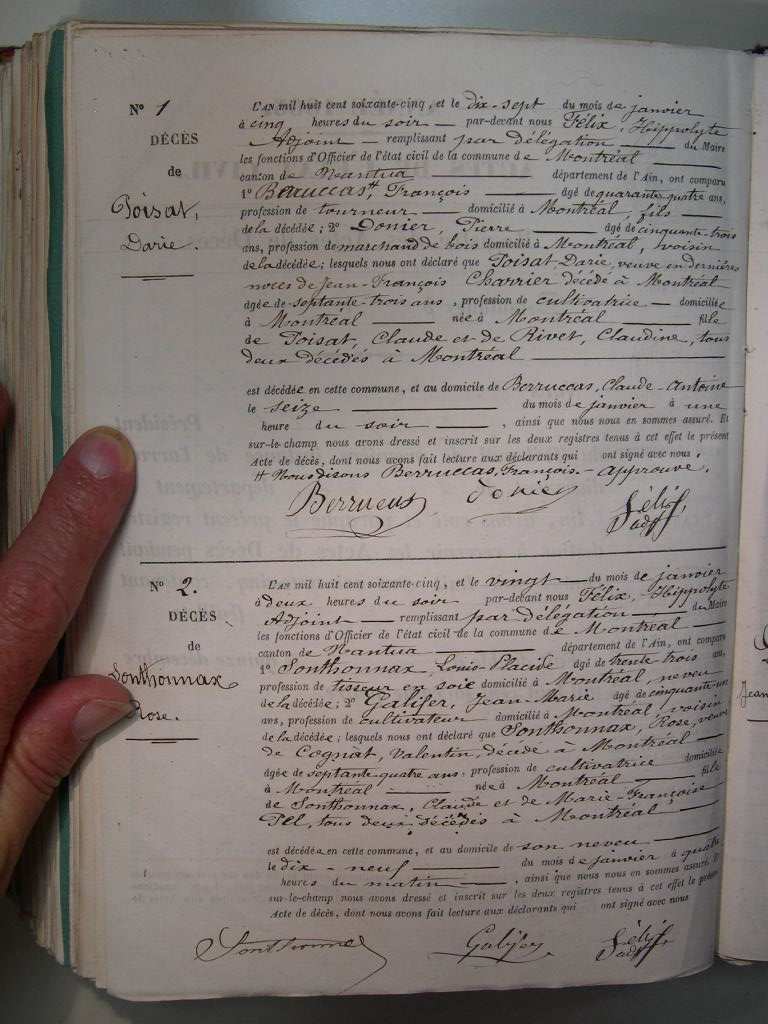 N° 1
DÉCÈS
de
Poisat,
Darie.
L'AN mil huit cent soixante-cinq, et le dix-sept du mois de janvier
à cinq heures du soir par-devant nous Félix, Hippolyte
Adjoint remplissant par délégation du Maire
les fonctions d'Officier de l'état civil de la commune de Montréal
canton de Nantua département de l'Ain, ont comparu
1° Beruccas, François âgé de quarante-quatre ans,
profession de tourneur domicilié à Montréal, fils
de la décédée; 2° Donier, Pierre âgé de cinquante-trois
ans, profession de marchand de bois domicilié à Montréal, voisin
de la décédée; lesquels nous ont déclaré que Poisat Darie, veuve en dernières
noces de Jean-François Charrier décédé à Montréal
âgée de septante-trois ans, profession de cultivatrice domiciliée
à Montréal née à Montréal fille
de Poisat, Claude et de Rivet, Claudine, tous
deux décédés à Montréal
est décédée en cette commune, et au domicile de Berruccas, Claude-Antoine
le seize du mois de janvier à une
heure du soir, ainsi que nous nous en sommes assuré. Et
sur-le-champ nous avons dressé et inscrit sur les deux registres tenus à cet effet le présent
Acte de décès, dont nous avons fait lecture aux déclarants qui ont signé avec nous.
# Nous disons Berruccas, François.- approuvé.
Berrucas Donier Félix
adj
N° 2.
DÉCÈS
de
Sonthonnax
Rose.
L'AN mil huit cent soixante-cinq, et le vingt du mois de janvier
à deux heures du soir par-devant nous Félix, Hippolyte
Adjoint remplissant par délégation du Maire
les fonctions d'Officier de l'état civil de la commune de Montréal
canton de Nantua département de l'Ain, ont comparu
1° Sonthonnax, Louis-Placide âgé de trente trois ans,
profession de tisseur en soie domicilié à Montréal, neveu
de la décédée; 2° Galifer, Jean-Marie âgé de cinquante-un
ans, profession de cultivateur domicilié à Montréal, voisin
de la décédée; lesquels nous ont déclaré que Sonthonnax, Rose, veuve
de Cognat, Valentin, décédé à Montréal
âgée de septante-quatre ans, profession de cultivatrice domiciliée
à Montréal née à Montréal fille
de Sonthonnax, Claude et de Marie-Françoise
Pell, tous deux décédés à Montréal
est décédée en cette commune, et au domicile de son neveu
le dix-neuf du mois de janvier à quatre
heures du matin, ainsi que nous nous en sommes assuré. Et
sur-le-champ nous avons dressé et inscrit sur les deux registres tenus à cet effet le présent
Acte de décès, dont nous avons fait lecture aux déclarants qui ont signé avec nous
Sonthonnax Galifer Félix
adj